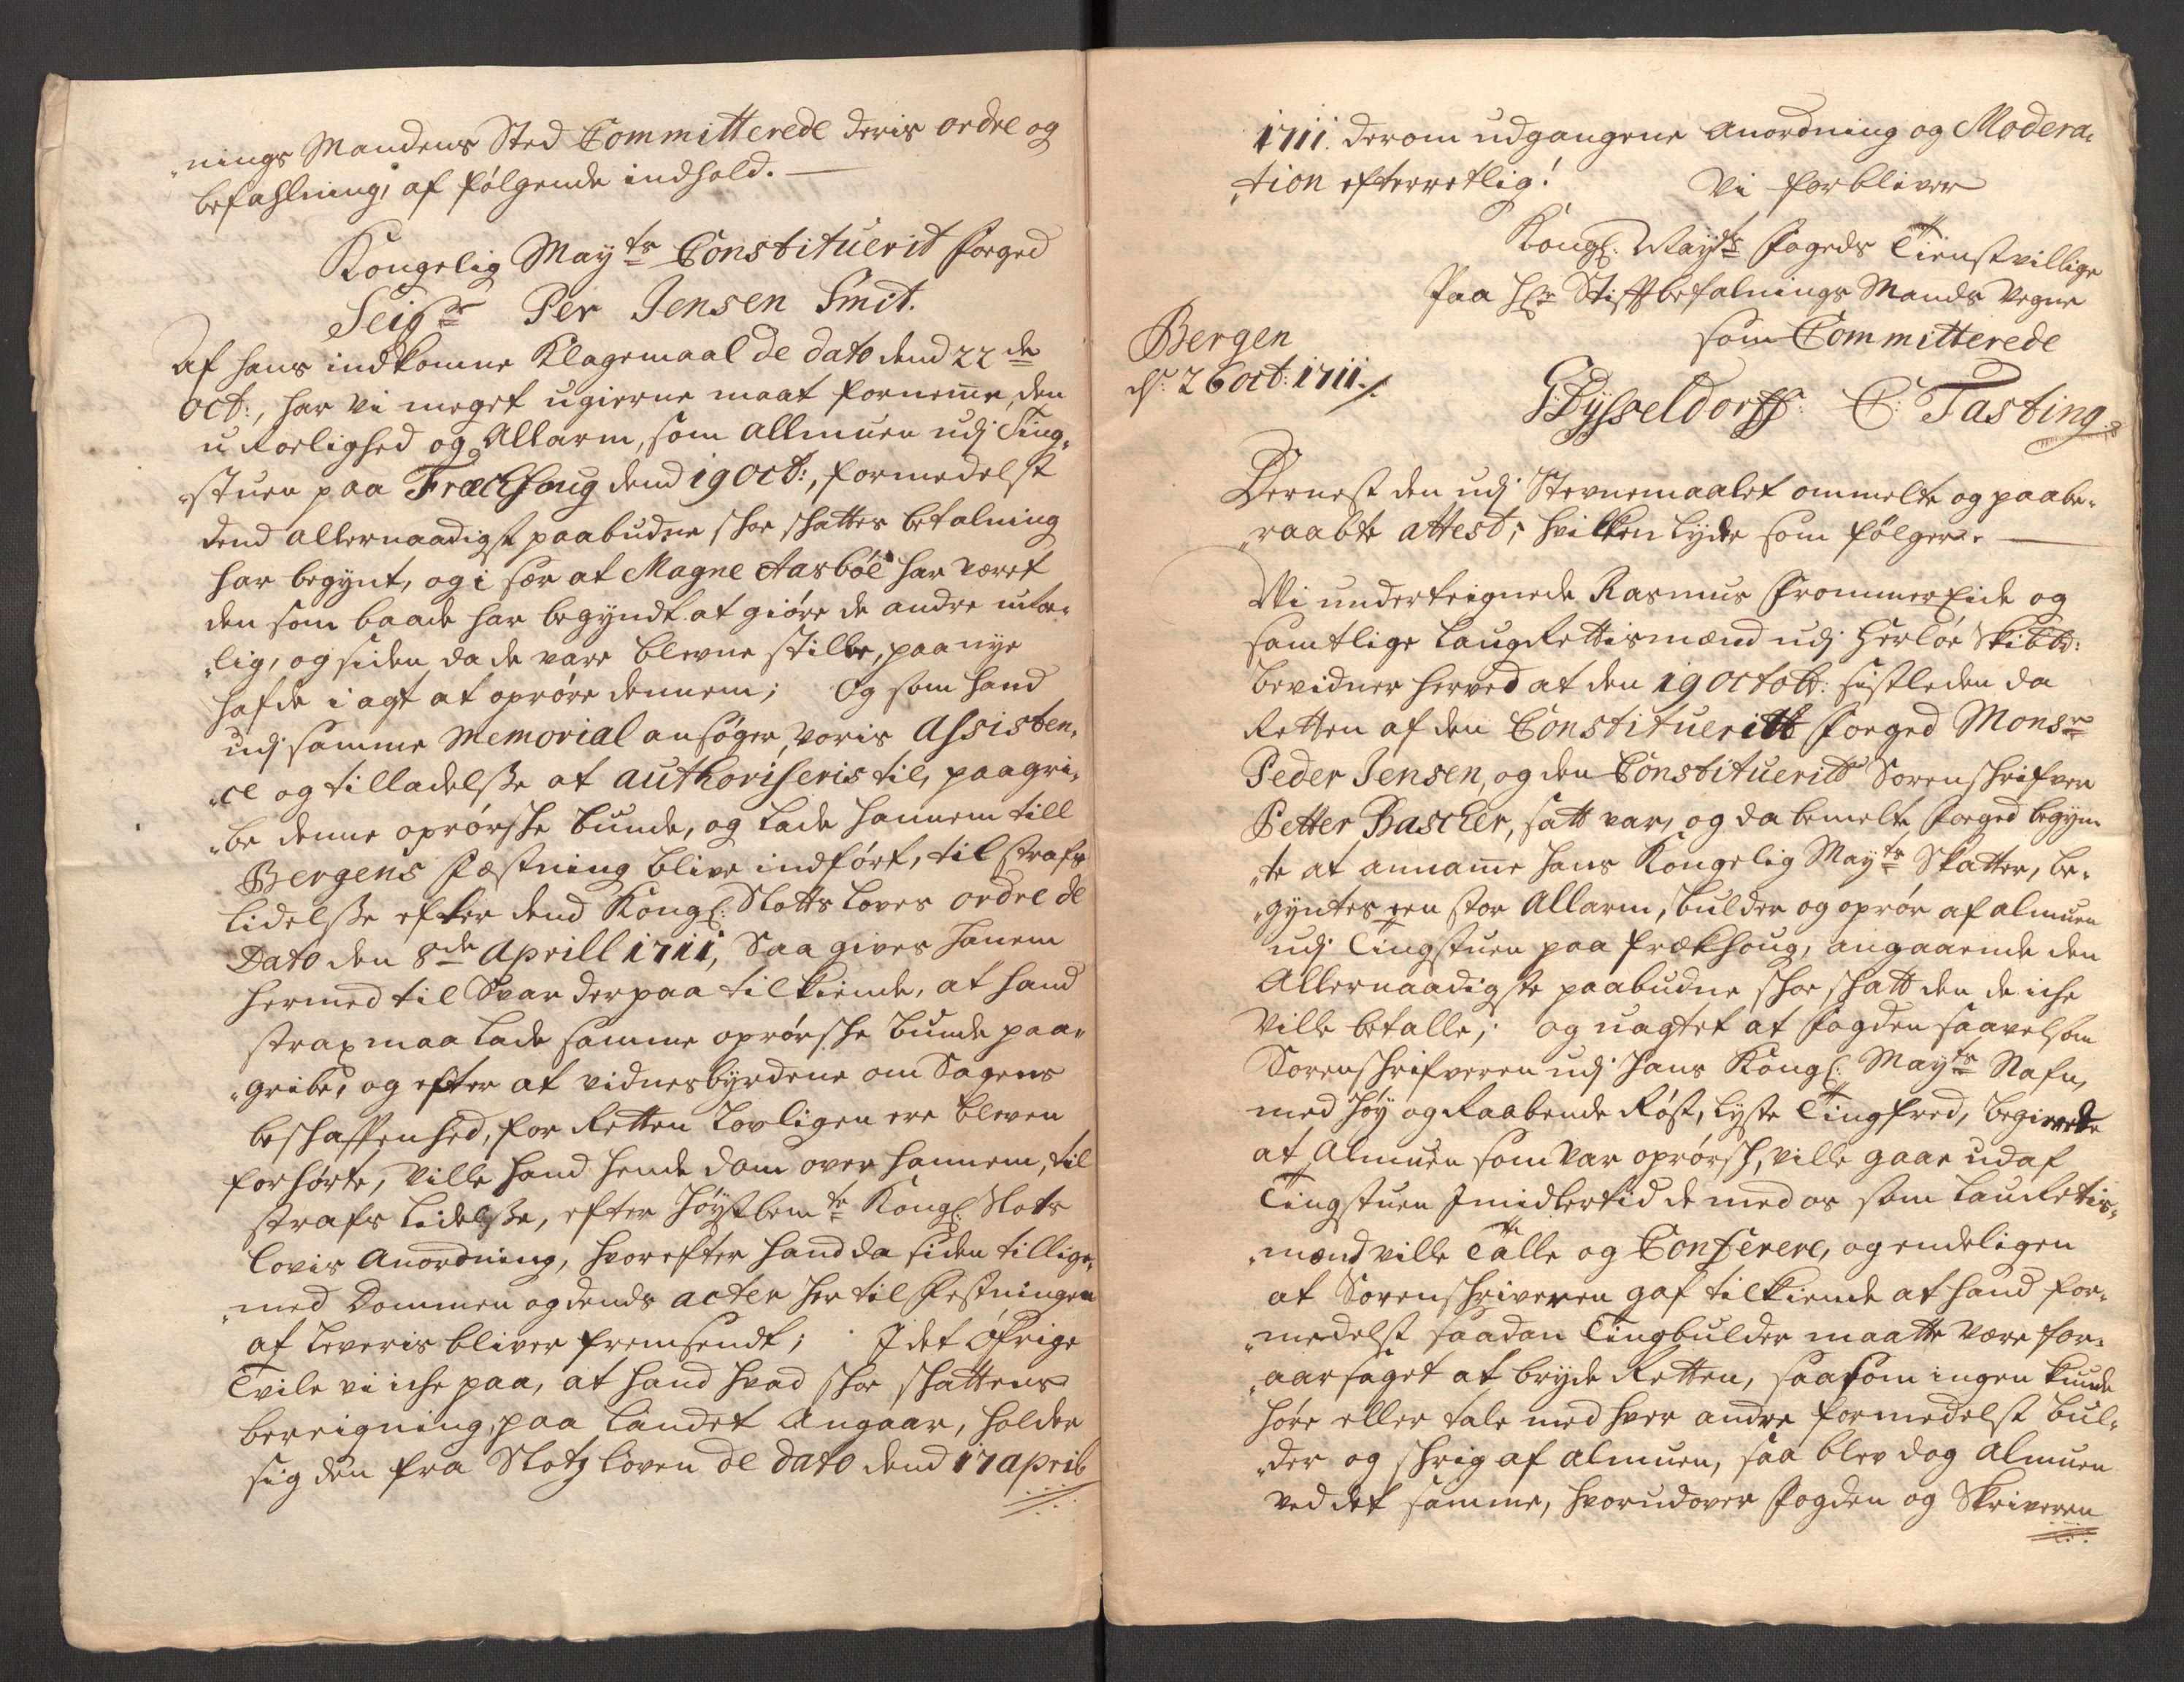 nings Mandens Sted Committerede deris ordre og
befahlning, af følgende indhold.
Kongelig Mayts Constituerit Foeged
Seigr Per Jensen Smit.
Af hans indkomne Klagemaal de dato dend 22de
Oct:, har vi meget ugierne maat fornemme, den
u-Roelighed og Allarm, som Allmuen udj Ting-
stuen paa Fræchhoug dend 19 Oct:, formedelst
dend allernaadigst paabudne shoe shattes betalning
har begynt, og i sær at Magne Aasbøe har været
den som baade har begyndt at giøre de andre uroe-
lig, og siden da de vare blevne stille, paa nye
hafde i agt at oprøre dennem; Og som hand
udj samme Memorial ansøger voris Assisten-
ce og tilladelsse at authoriseris til, paagri-
be denne oprørshe bunde, og lade hannem till
Bergens Fæstning blive indført, til straffe
lidelsse efter dend Kongl: Slotts Loves ordre de
Dato den 8de Aprill 1711, Saa gives hanem
hermed til Svar derpaa tilkiende, at hand
strax maa lade samme oprørshe bunde paa-
gribe, og efter at vidnesbyrdene om Sagens
beshaffenhed, for Retten Lovligen ere bleven
forhørte, ville hand hende dom over hannem, til
strafs lidelsse, efter høystbemte Kongl: Slots
lovis Anordning, hvorefter hand da siden tillige-
med Dommen og dends acter her til Festningen
at leveris bliver fremsendt; I det øfrige
Tvile vi iche paa, at hand hvad shoe shattens
bereigning, paa landet angaar, holder
sig den fra Slotz loven de dato dend 17 aprils
1711. derom udgangene anordning og Modera-
tion efterretlig! Vi forbliver
Kongl: Mayts Fogeds Tienstvillige
Paa Hr: Stiftbefalnings Mands Vegne
som Committerede
Bergen
dr. 26 oct: 1711./.
G: Dysseldorff: C: Tasting
Dernest den udj Stevnemaalet ommelte og paabe-
raabte attest; hvilken lyder som følger.
Vi underteignede Rasmus FrommerEide og
samtlige LaugRettismænd udj Herløe Skibbr:
bevidner herved at den 19 Octobr: sistleden da
Retten af den Constitueritt Foeged Monsr
Peder Jensen, og den Constitueritt Sorenshrifver
Petter Bascher, satt var, og da bemelte Foeged begyn-
te at anname hans Kongelig Mayts Skatter, be-
gyntes een stor Allarm, bulder og oprør af almuen
udj Tingstuen paa frækhoug, angaaende den
Allernaadigste paabudne shoe shatt den de iche
ville betalle; og uagtet at Fogden saavelsom
Sorenshrifveren udj hans Kongl: Mayts Nafn,
med høy og Raabende Røst, lyste Tingfred, begierte
at Almuen som var oprørsh, ville gaae ud af
Tingstuen Imidlertid de med os som LauRettis-
mænd ville Talle og Conferere, og endeligen
at Sorenshriveren gaf tilkiende at hand for-
medelst saadan Tingbulder maatte være for-
aarsaget at bryde Retten, saasom ingen kunde
høre eller tale med hver andre formedelst bul-
der og shrig af almuen, saa blev dog Almuen
ved det samme, hvorudover Fogden og Skriveren